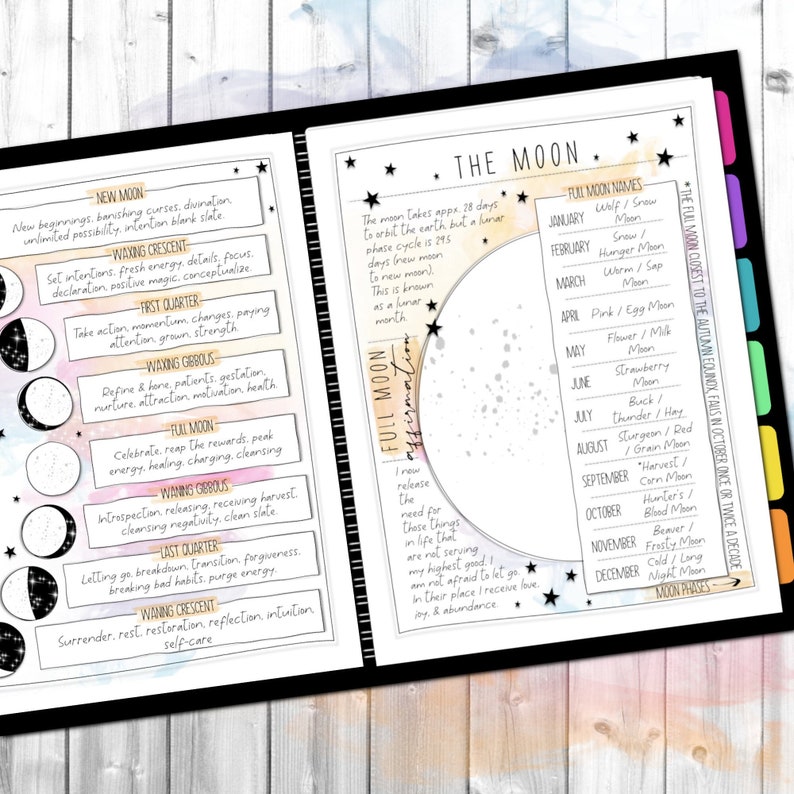 NEW MOON
New beginnings, banishing curses, divination,
unlimited possibility, intention blank slate.
WAXING CRESCENT
Set intentions, fresh energy, details, focus,
declaration, positive magic, conceptualize.
FIRST QUARTER
Take action, momentum, changes, paying
attention, grown, strength.
WAXING GIBBOUS
Refine & hone, patients, gestation,
nurture, attraction, motivation, health.
FULL MOON
Celebrate, reap the rewards, peak
energy, healing, charging, cleansing
WANING GIBBOUS
Introspection, releasing, receiving harvest,
cleansing negativity, clean slate.
LAST QUARTER
Letting go, breakdown, transition, forgiveness,
breaking bad habits, purge energy.
WANING CRESCENT
Surrender, rest, restoration, reflection, intuition,
self-care
THE MOON
The moon Takes appx. 28 days
to orbit the earth, but a lunar
phase cycle is 29.5
days (new moon
to new moon).
This is known
as a lunar
month.
FULL MOON
affirmation
I now
release
the
need for
those things
in life that
are not serving
my highest good. I
am not afraid to let go.
In their place I receive love,
joy, & abundance.
FULL MOON NAMES
JANUARY Wolf / Snow
Moon
FEBRUARY Snow /
Hunger Moon
MARCH Worm / Sap
Moon
APRIL Pink / Egg Moon
MAY Flower / Milk
Moon
JUNE Strawberry
Moon
JULY Buck /
thunder / Hay
AUGUST Sturgeon / Red
/ Grain Moon
SEPTEMBER *Harvest /
Corn Moon
OCTOBER Hunter's /
Blood Moon
NOVEMBER Beaver /
Frosty Moon
DECEMBER Cold / Long
Night Moon
*THE FULL MOON CLOSEST TO THE AUTUMN EQUINOX, FALLS IN OCTOBER ONCE OR TWICE A DECADE
MOON PHASES